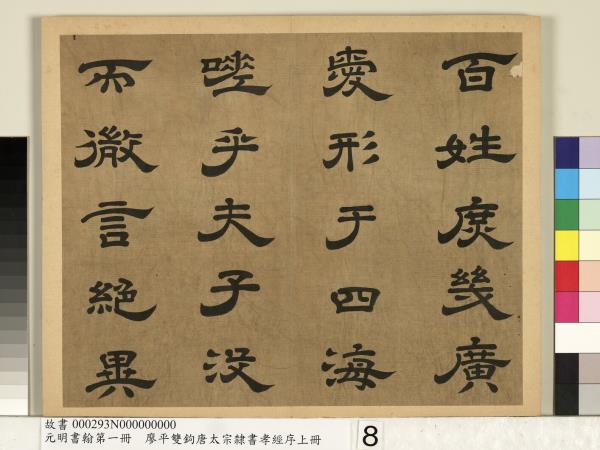 百姓庶幾廣
愛形于四海
嗟乎夫子沒
而微言絕異
故書 000293N000000000
元明書翰第一冊 廖平雙鉤唐太宗隸書孝經序上冊
8